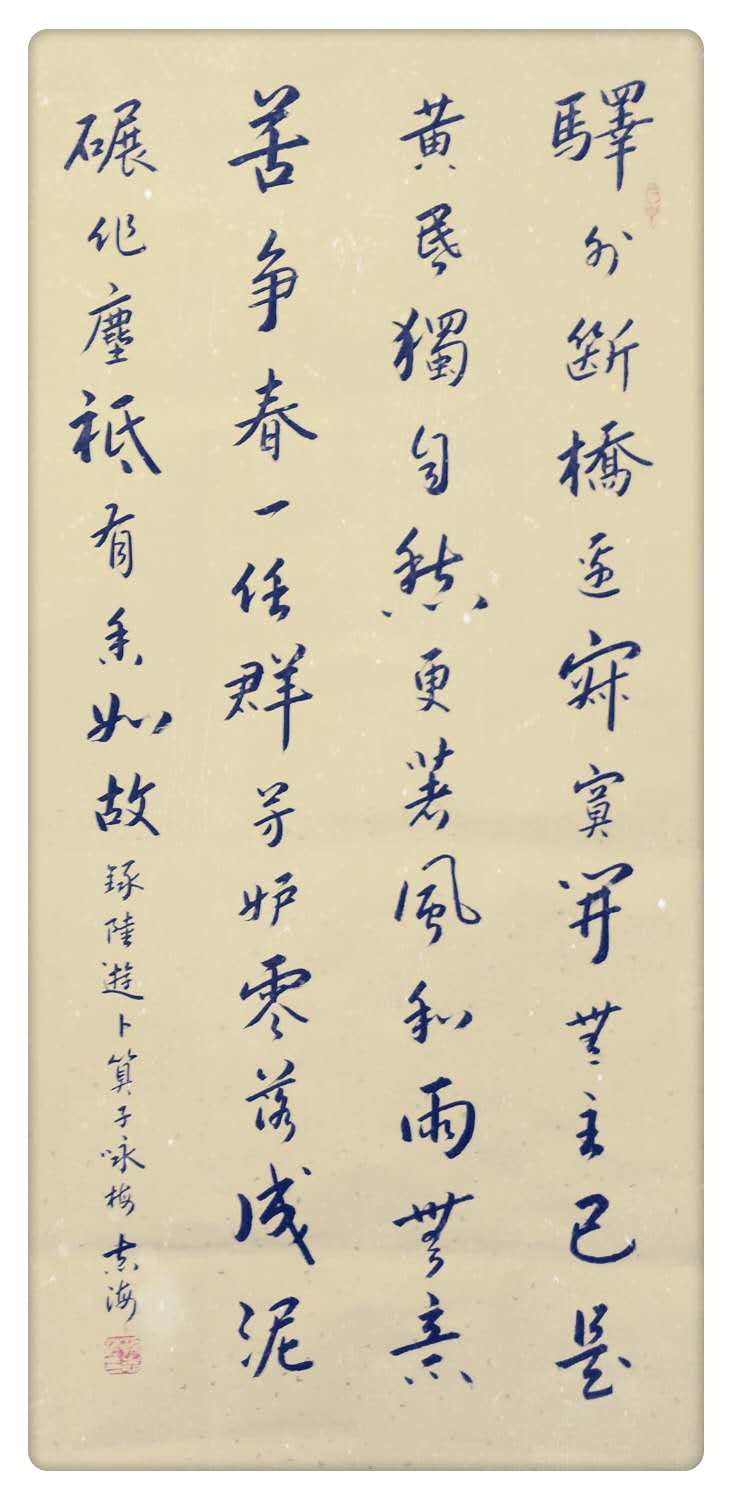 驛外斷橋邊寂寞開無主已是
黃昏獨自愁更著風和雨無意
苦争春一任群芳妒零落成泥
碾作塵祗有香如故錄陸遊卜算子咏梅志海